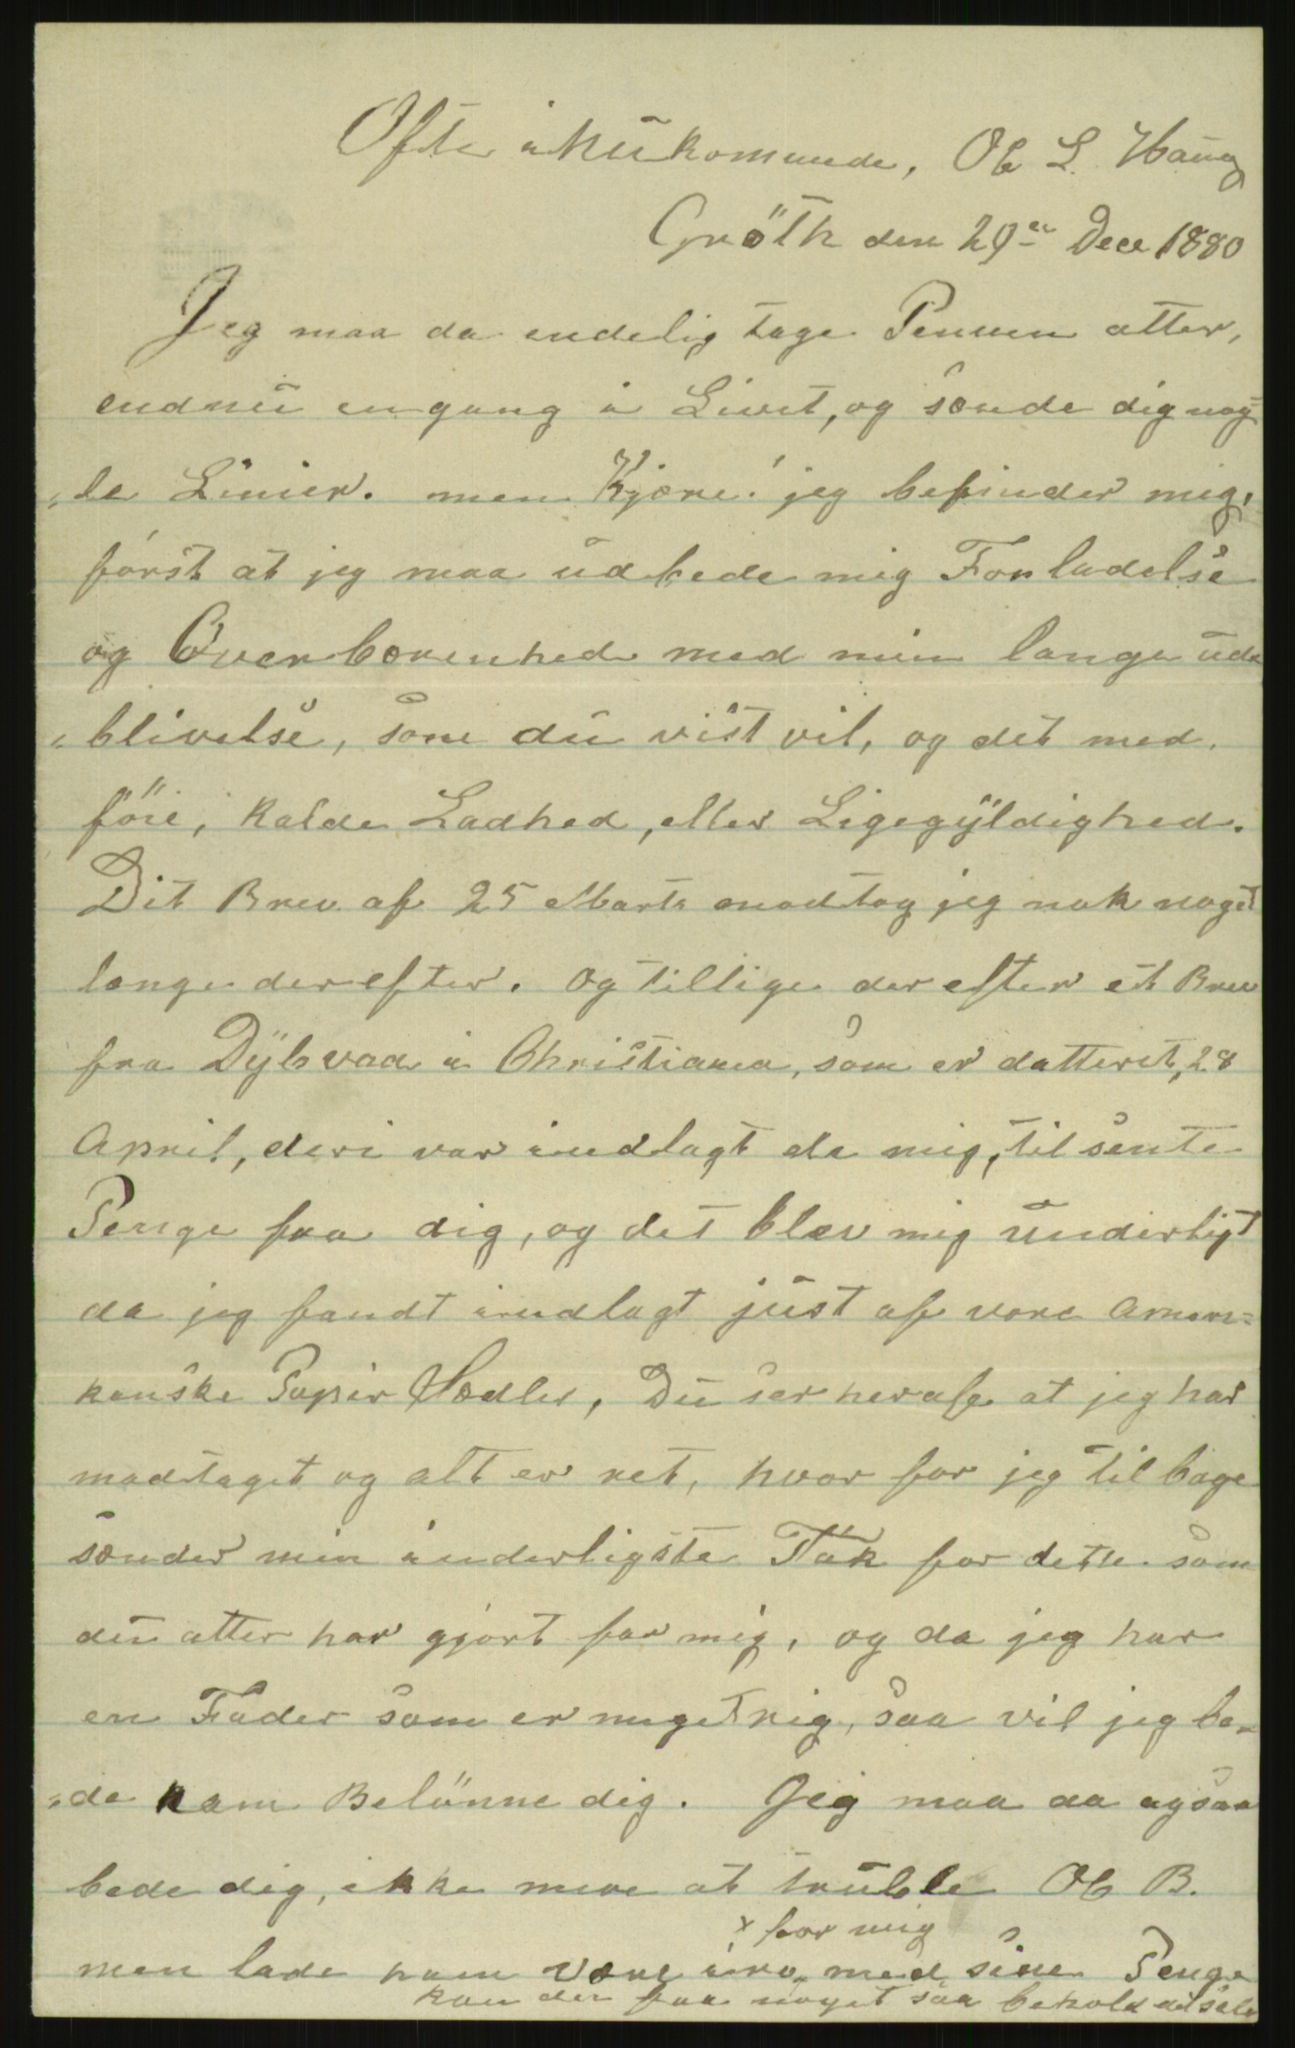 Ofte ihukommede, O L. Haug
Gröth den 29en Dece 1880
Jeg maa da endelig tage Pennen atter,
endnu engang i Livet, og sænde dig nog=
=le Linier. men Kjære! jeg befinder mig,
först at jeg maa udbede mig Forladelse
og Overbærenhed med min lange ude
=blivelse, som du vist vil, og det med
föie, kalde Ladhed, eller Ligegyldighed.
Dit Brev af 25 Marts modtog jeg nok noget
længe derefter. og tillige derefter et Brev
fra Dybvad i Christiania, som er datteret, 28
April, deri var indlagt de mig, tilsente
Penge fra dig, og det blev mig underligt
da jeg fandt indlagt just af vore Ameri=
kanske Papir Sedler, Du ser heraf at jeg har
modtaget og alt er ret, hvor for jeg tilbage
sænder min inderligste Tak for dette som
du atter har gjort for mig, og da jeg har
en Fader som er meget rig, saa vil jeg be=
=de ham Belönne dig. Jeg maa da ogsaa
bede dig, ikke mere at truble O B.
x for mig
men lade ham være iro med sine Penge
kan der faa noget saa behold det selv